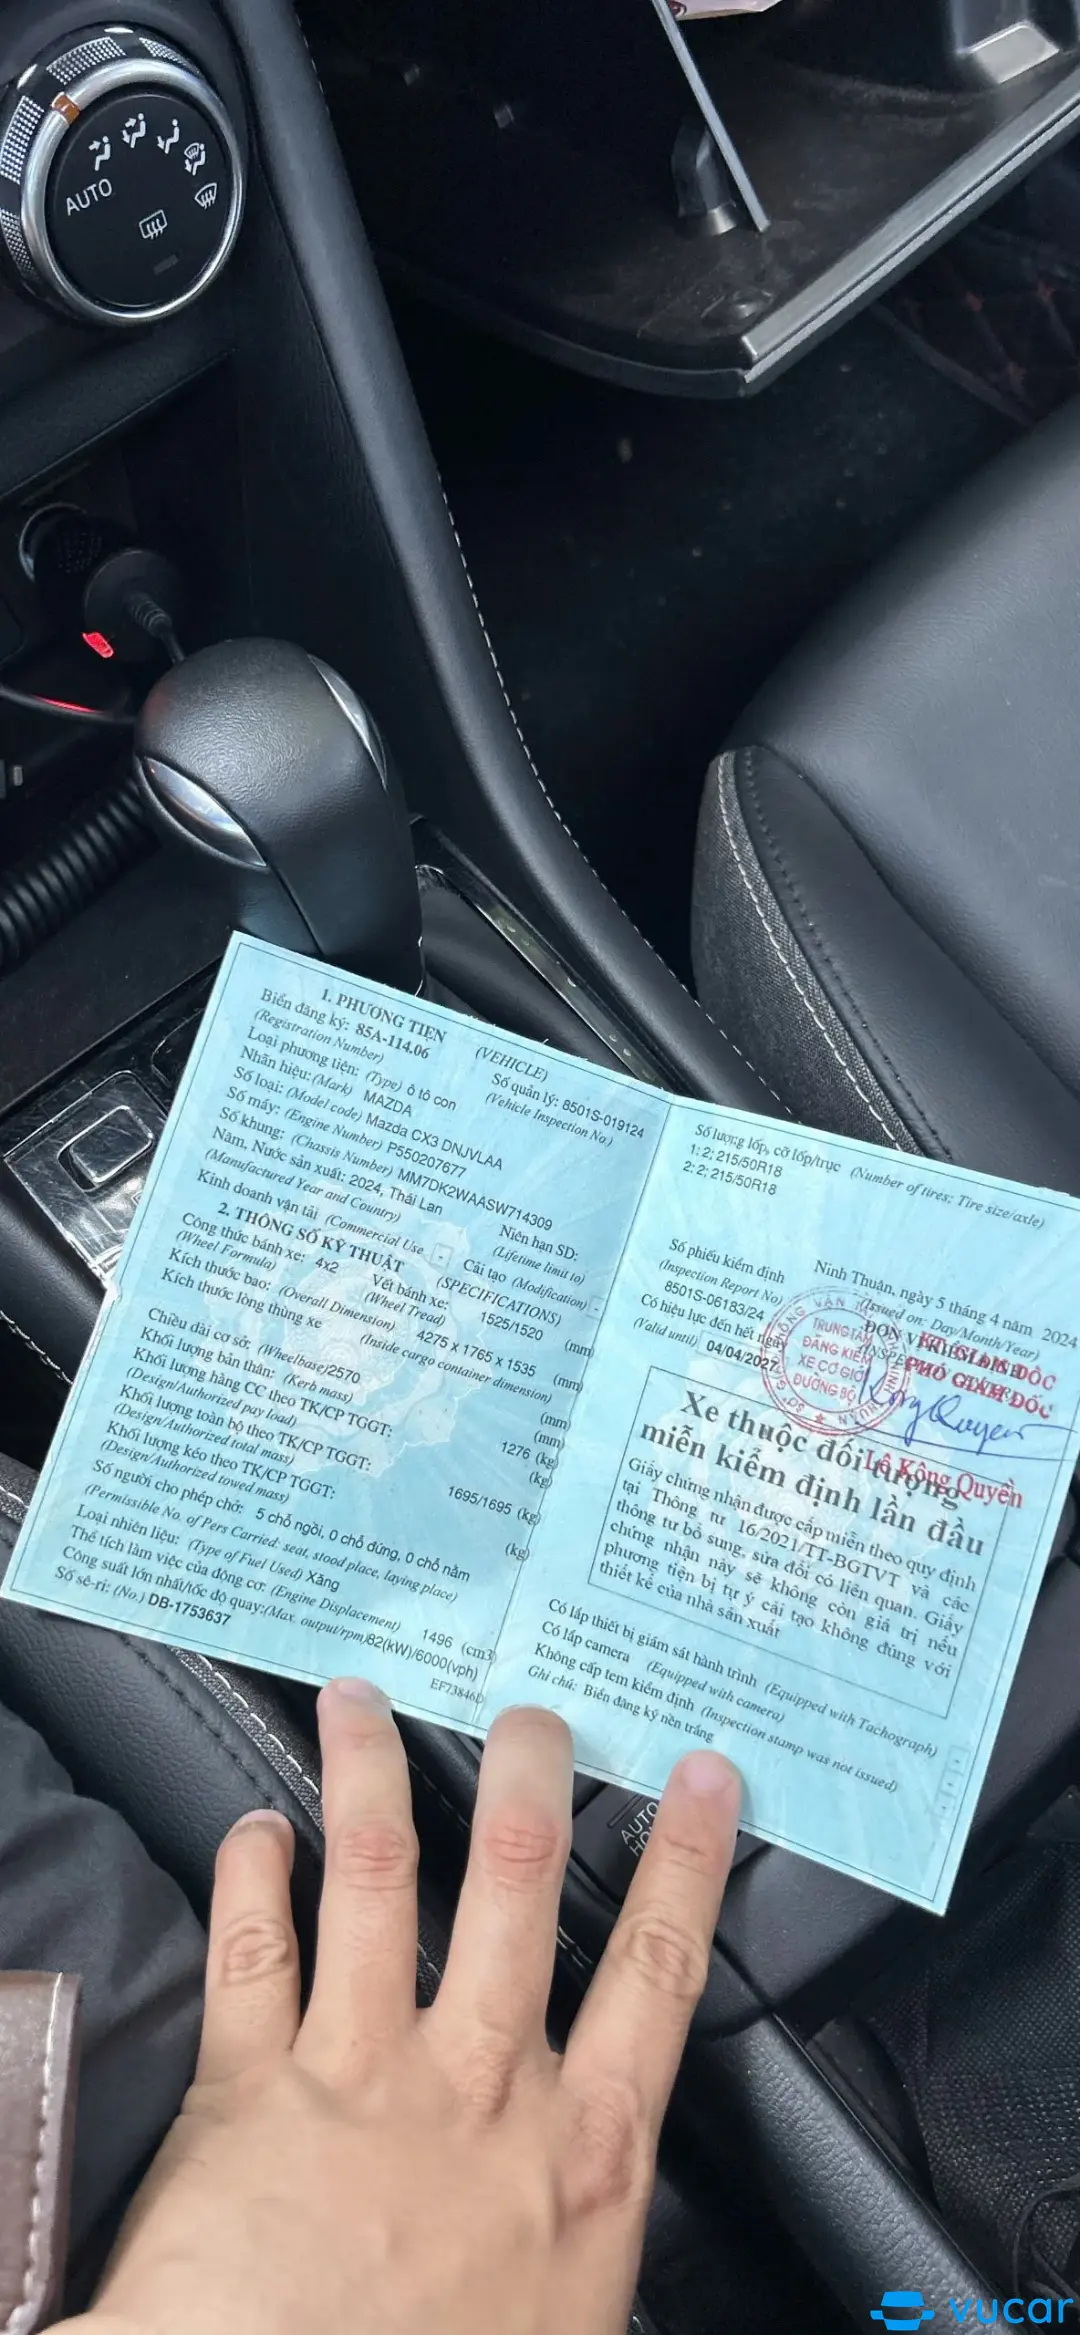 AUTO
1. PHƯƠNG TIỆN (VEHICLE)
Biển đăng ký: 85A-114.06
(Registration Number)
Số quản lý: 8501S-019124
(Vehicle Inspection No.)
Loại phương tiện: (Type) ô tô con
Nhãn hiệu: (Mark) MAZDA
Số loại: (Model code) Mazda CX3 DNJVLAA
Số máy: (Engine Number) P550207677
Số khung: (Chassis Number) MM7DK2WAASW714309
Năm, Nước sản xuất: 2024, Thái Lan
(Manufactured Year and Country)
Niên hạn SD:
(Lifetime limit to)
Kinh doanh vận tải (Commercial Use) -
Cải tạo (Modification) -
2. THÔNG SỐ KỸ THUẬT (SPECIFICATIONS)
Công thức bánh xe: 4x2
(Wheel Formula)
Vết bánh xe: 1525/1520 (mm)
(Wheel Tread)
Kích thước bao: (Overall Dimension) 4275 x 1765 x 1535 (mm)
Kích thước lòng thùng xe (Inside cargo container dimension) (mm)
Chiều dài cơ sở: (Wheelbase) 2570 (mm)
Khối lượng bản thân: (Kerb mass) 1276 (kg)
Khối lượng hàng CC theo TK/CP TGGT: (kg)
(Design/Authorized pay load)
Khối lượng toàn bộ theo TK/CP TGGT: 1695/1695 (kg)
(Design/Authorized total mass)
Khối lượng kéo theo TK/CP TGGT: (kg)
(Design/Authorized towed mass)
Số người cho phép chở: 5 chỗ ngồi, 0 chỗ đứng, 0 chỗ nằm
(Permissible No. of Pers Carried: seat, stood place, laying place)
Loại nhiên liệu: (Type of Fuel Used) Xăng
Thể tích làm việc của động cơ: (Engine Displacement) 1496 (cm3)
Công suất lớn nhất/tốc độ quay:(Max. output/rpm)82(kW)/6000(vph)
Số sê-ri: (No.) DB-1753637
Số lượng lốp, cỡ lốp/trục (Number of tires; Tire size/axle)
1: 2: 215/50R18
2: 2: 215/50R18
Số phiếu kiểm định
(Inspection Report No)
8501S-06183/24
Có hiệu lực đến hết ngày
(Valid until) 04/04/2027
Ninh Thuận, ngày 5 tháng 4 năm 2024
(Issued on: Day/Month/Year)
TRUNG TÂM
ĐĂNG KIỂM
XE CƠ GIỚI
ĐƯỜNG BỘ
PHÓ GIÁM ĐỐC
Lê Kông Quyền
Xe thuộc đối tượng
miễn kiểm định lần đầu
Giấy chứng nhận được cấp miễn theo quy định
tại Thông tư 16/2021/TT-BGTVT và các
thông tư bổ sung, sửa đổi có liên quan. Giấy
chứng nhận này sẽ không còn giá trị nếu
phương tiện bị tự ý cải tạo không đúng với
thiết kế của nhà sản xuất
Có lắp thiết bị giám sát hành trình (Equipped with Tachograph) -
Có lắp camera (Equipped with camera) -
Không cấp tem kiểm định (Inspection stamp was not issued) -
Ghi chú: Biển đăng ký nền trắng
AUTO
vucar